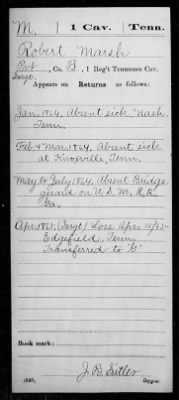 M. 1 Cav. Tenn.
Robert Marsh
Pvt
Sergt., Co. B, 1 Reg't Tennessee Cav.
Appears on Returns as follows:
Jan. 1864, Absent sick Nash.
Tenn.
Feb & Mar. 1864, Absent sick
at Knoxville, Tenn.
May to July 1864, Absent Bridge
guard on U.S.M.R.R.
Ga.
Apr. 1865, (Sergt) Loss Apr.
Edgefield, Tenn.
Transferred to "G"
Book mark:
Copyist.